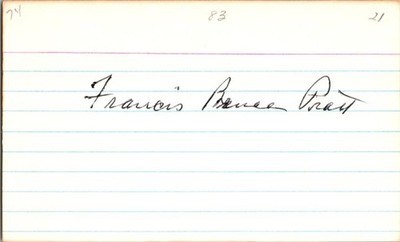 74 83 21
Francis Bruce Pratt